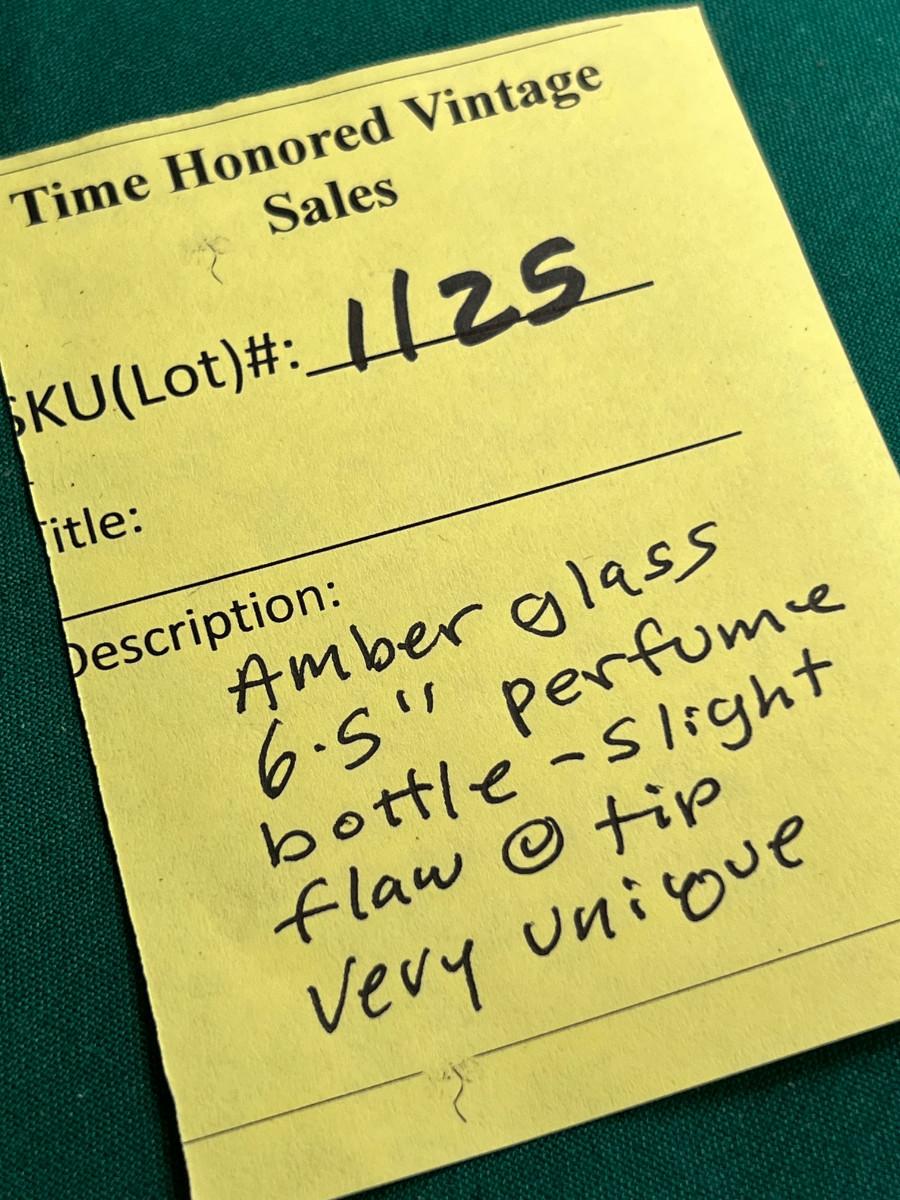 Time Honored Vintage
Sales
SKU(Lot)#: 1125
Title:
Description:
Amber glass
6.5" perfume
bottle - slight
flaw @ tip
very unique